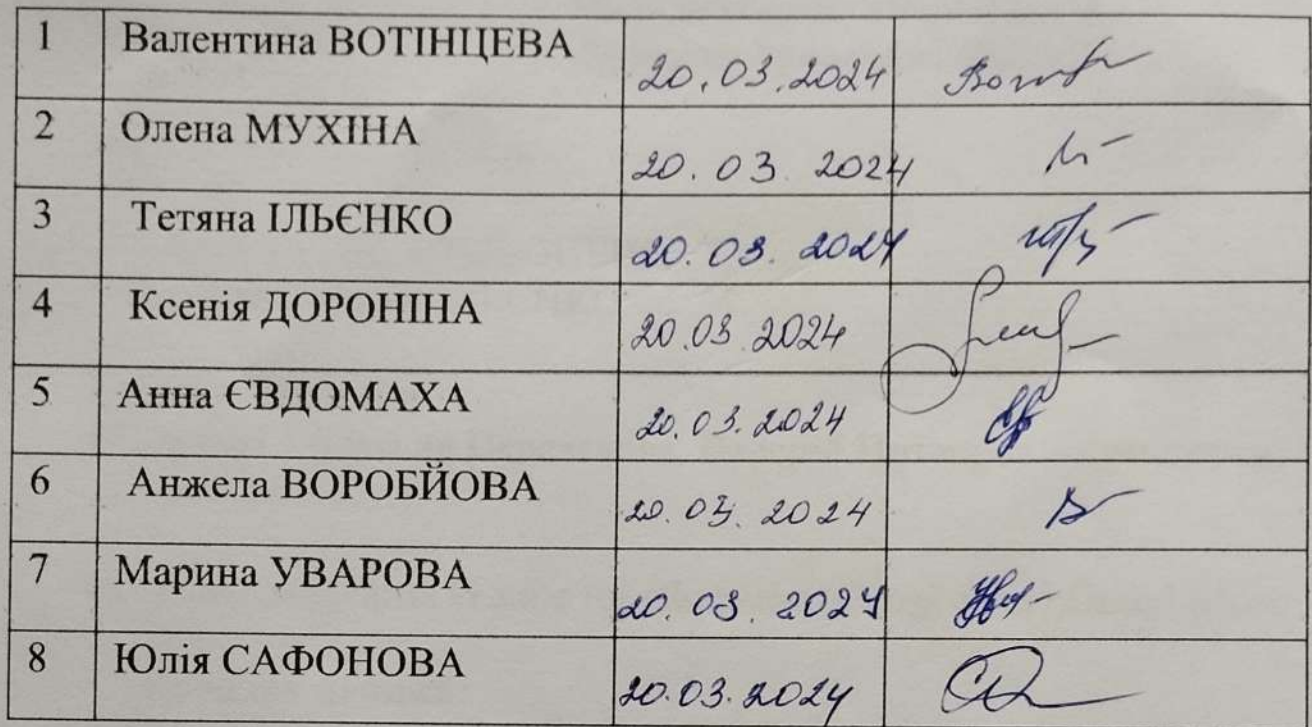 1 Валентина ВОТІНЦЕВА 20.03.2024
2 Олена МУХІНА 20.03.2024
3 Тетяна ІЛЬЄНКО 20.03.2024
4 Ксенія ДОРОНІНА 20.03.2024
5 Анна ЄВДОМАХА 20.03.2024
6 Анжела ВОРОБЙОВА 20.03.2024
7 Марина УВАРОВА 20.03.2024
8 Юлія САФОНОВА 20.03.2024